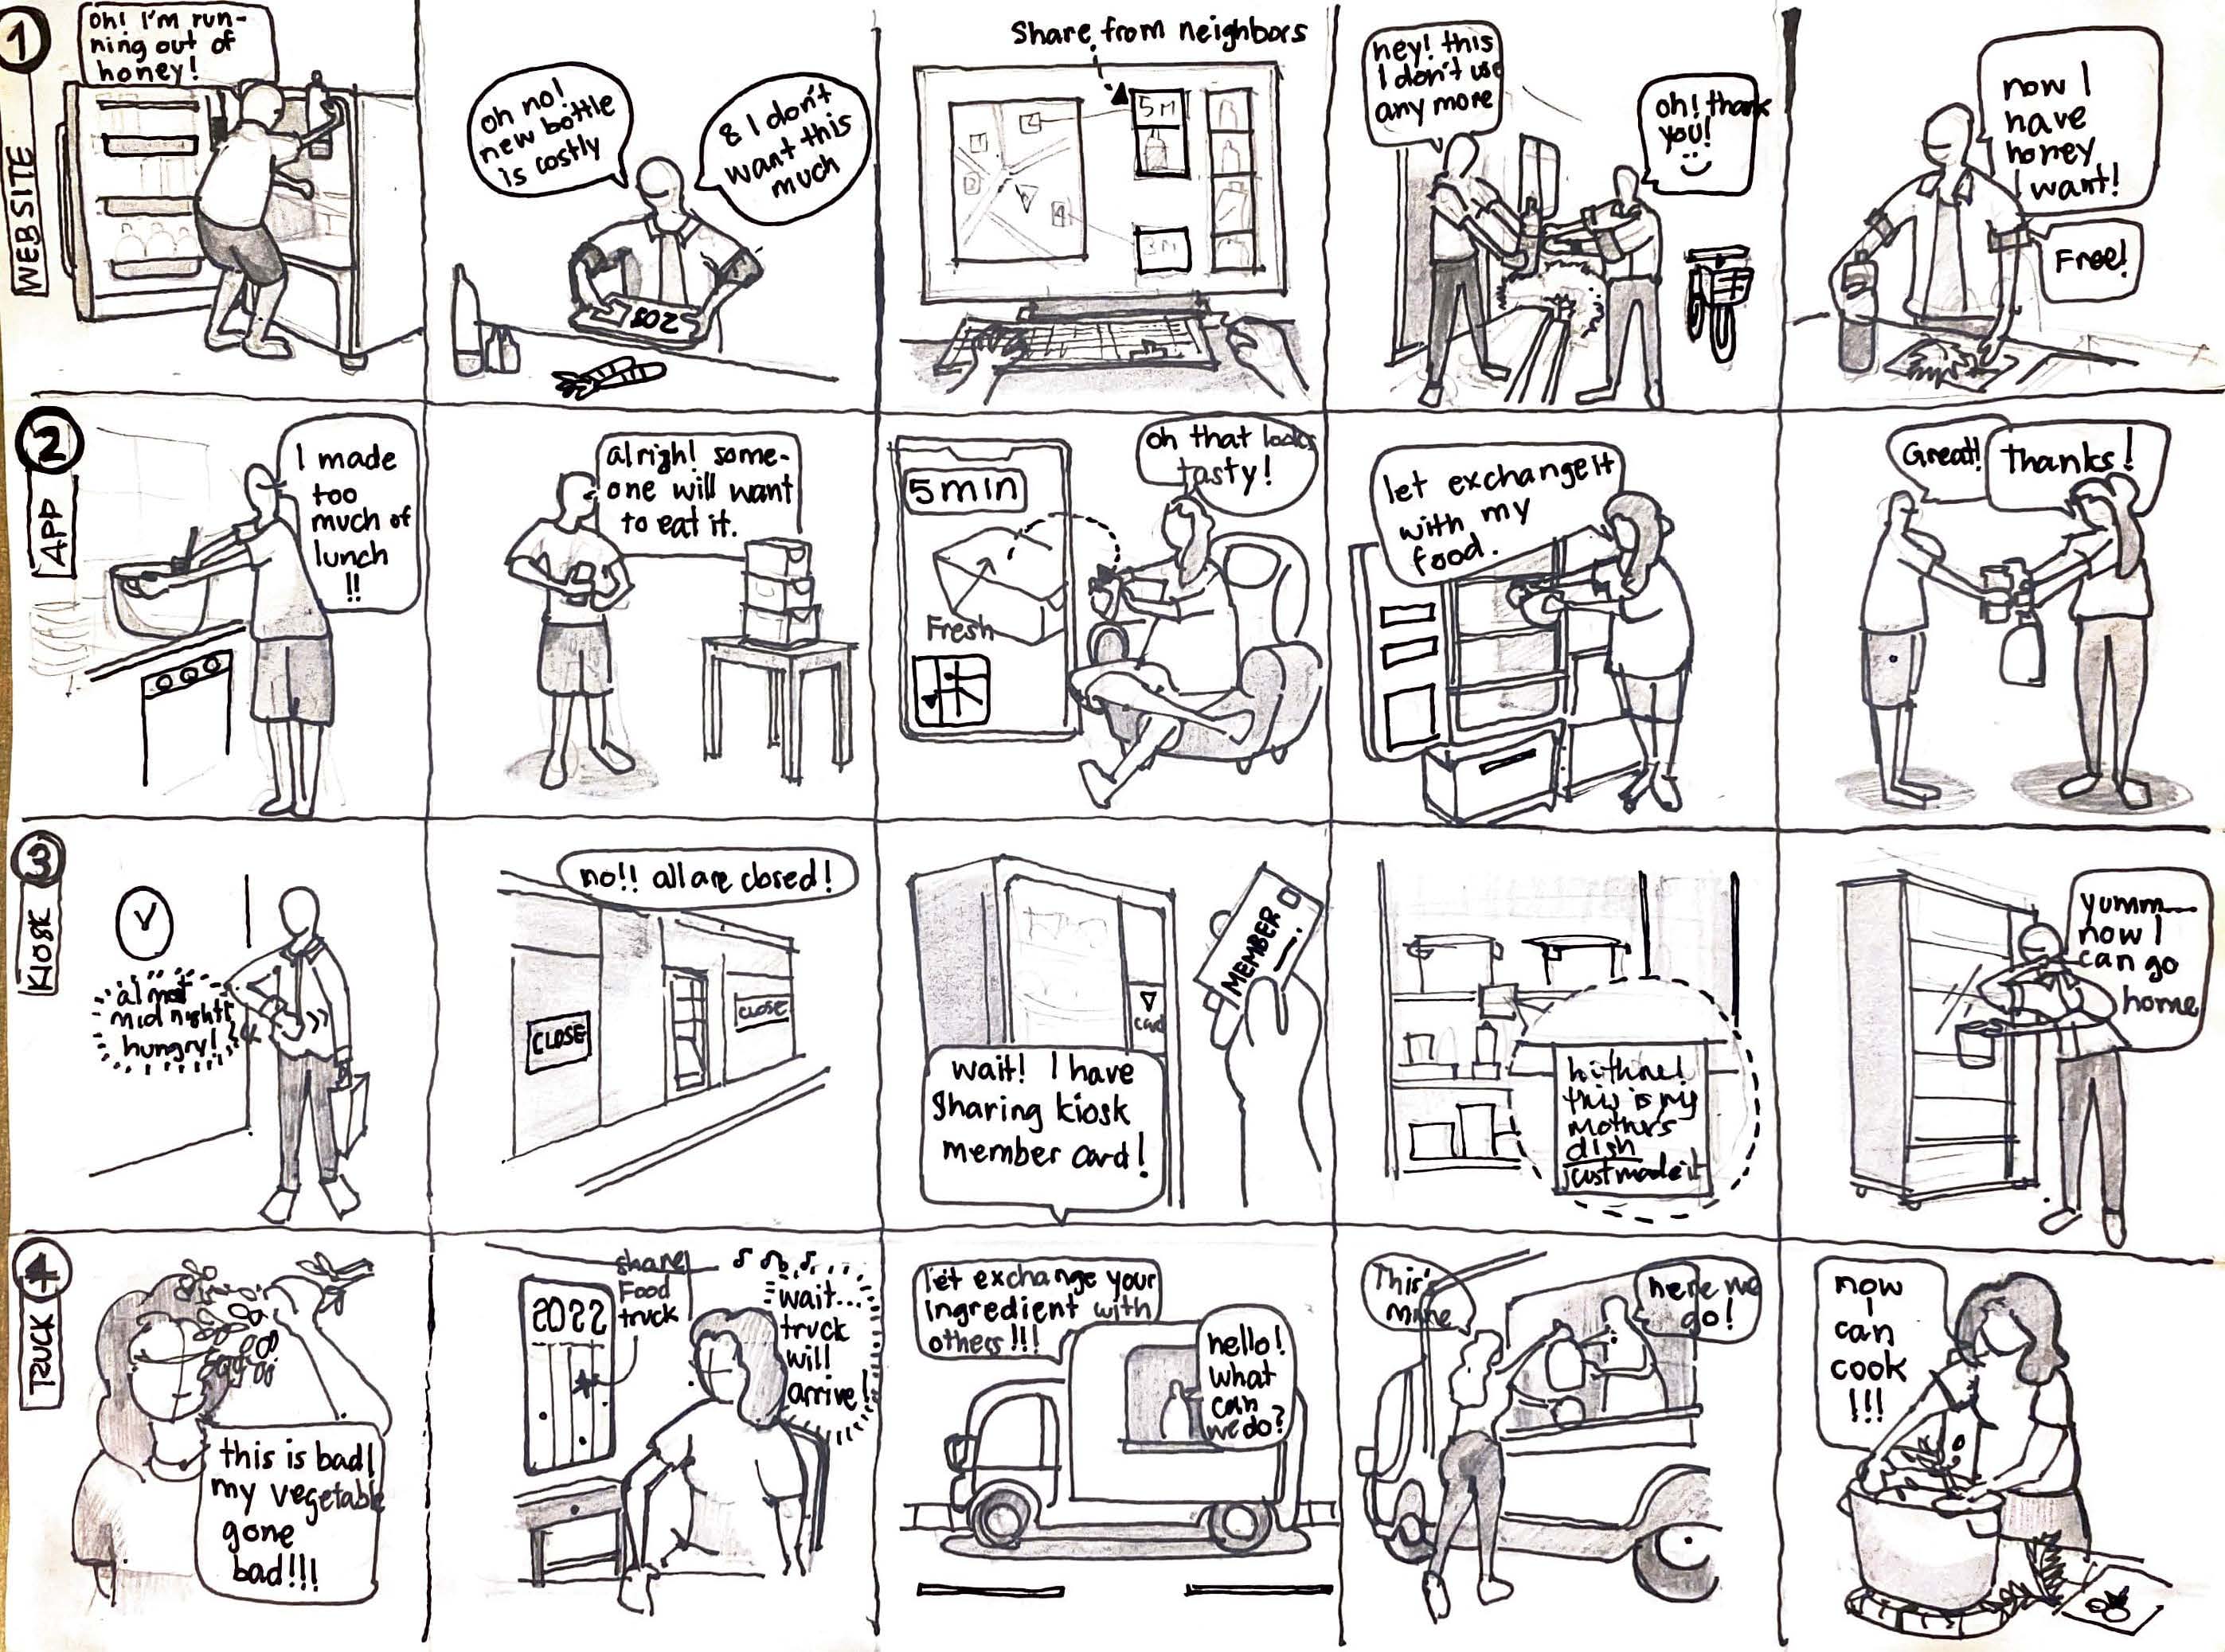 1
WEBSITE
oh! I'm run-
ning out of
honey!
oh no!
new bottle
is costly
& I don't
want this
much
Share from neighbors
5M
3M
hey! this
I don't use
any more
oh! thank
you!
now I
have
honey
I want!
Free!
2
APP
I made
too
much of
lunch
!!
alrigh! some-
one will want
to eat it.
5min
Fresh
oh that looks
tasty!
let exchange it
with my
food.
Great!
Thanks!
3
KIOSK
almost
midnight
hungry!
no!! all are closed!
CLOSE
CLOSE
MEMBER
card
wait! I have
Sharing kiosk
member card!
this is my
mother's
dish
just made it
yumm
now I
can go
home
4
TRUCK
this is bad!
my vegetable
gone
bad!!!
share
Food
truck
2022
wait...
truck
will
arrive!
let exchange your
ingredient with
others!!!
hello!
what
can
we do?
This'
mine
here we
go!
now
I
can
cook
!!!